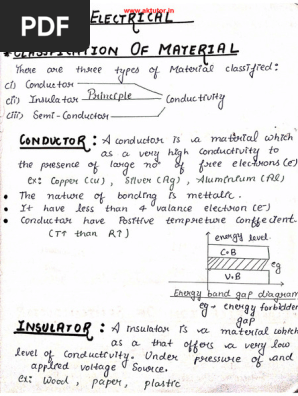 www.aktutor.in
PDF
ELECTRICAL
CLASSIFICATION OF MATERIAL
There are three types of Material classified:
(i) Conductor
(ii) Insulator Principle Conductivity
(iii) Semi-Conductor
CONDUCTOR: A conductor is a material which
as a very high conductivity to
the presence of large no of free electrons (e⁻)
ex: Copper (cu), Silver (Ag), Aluminium (Al)
• The nature of bonding is mettalic.
• It have less than 4 valance electron (e⁻)
• Conductor have Positive tempreture Coefficient.
(T↑ than R↑)
energy level.
C•B
eg
V•B
Energy band gap diagram
eg → energy forbidden
gap
INSULATOR: A insulator is a material which
as a that offers a very low
level of conductivity. Under pressure of and
applied voltage Source.
ex: wood, paper, plastic